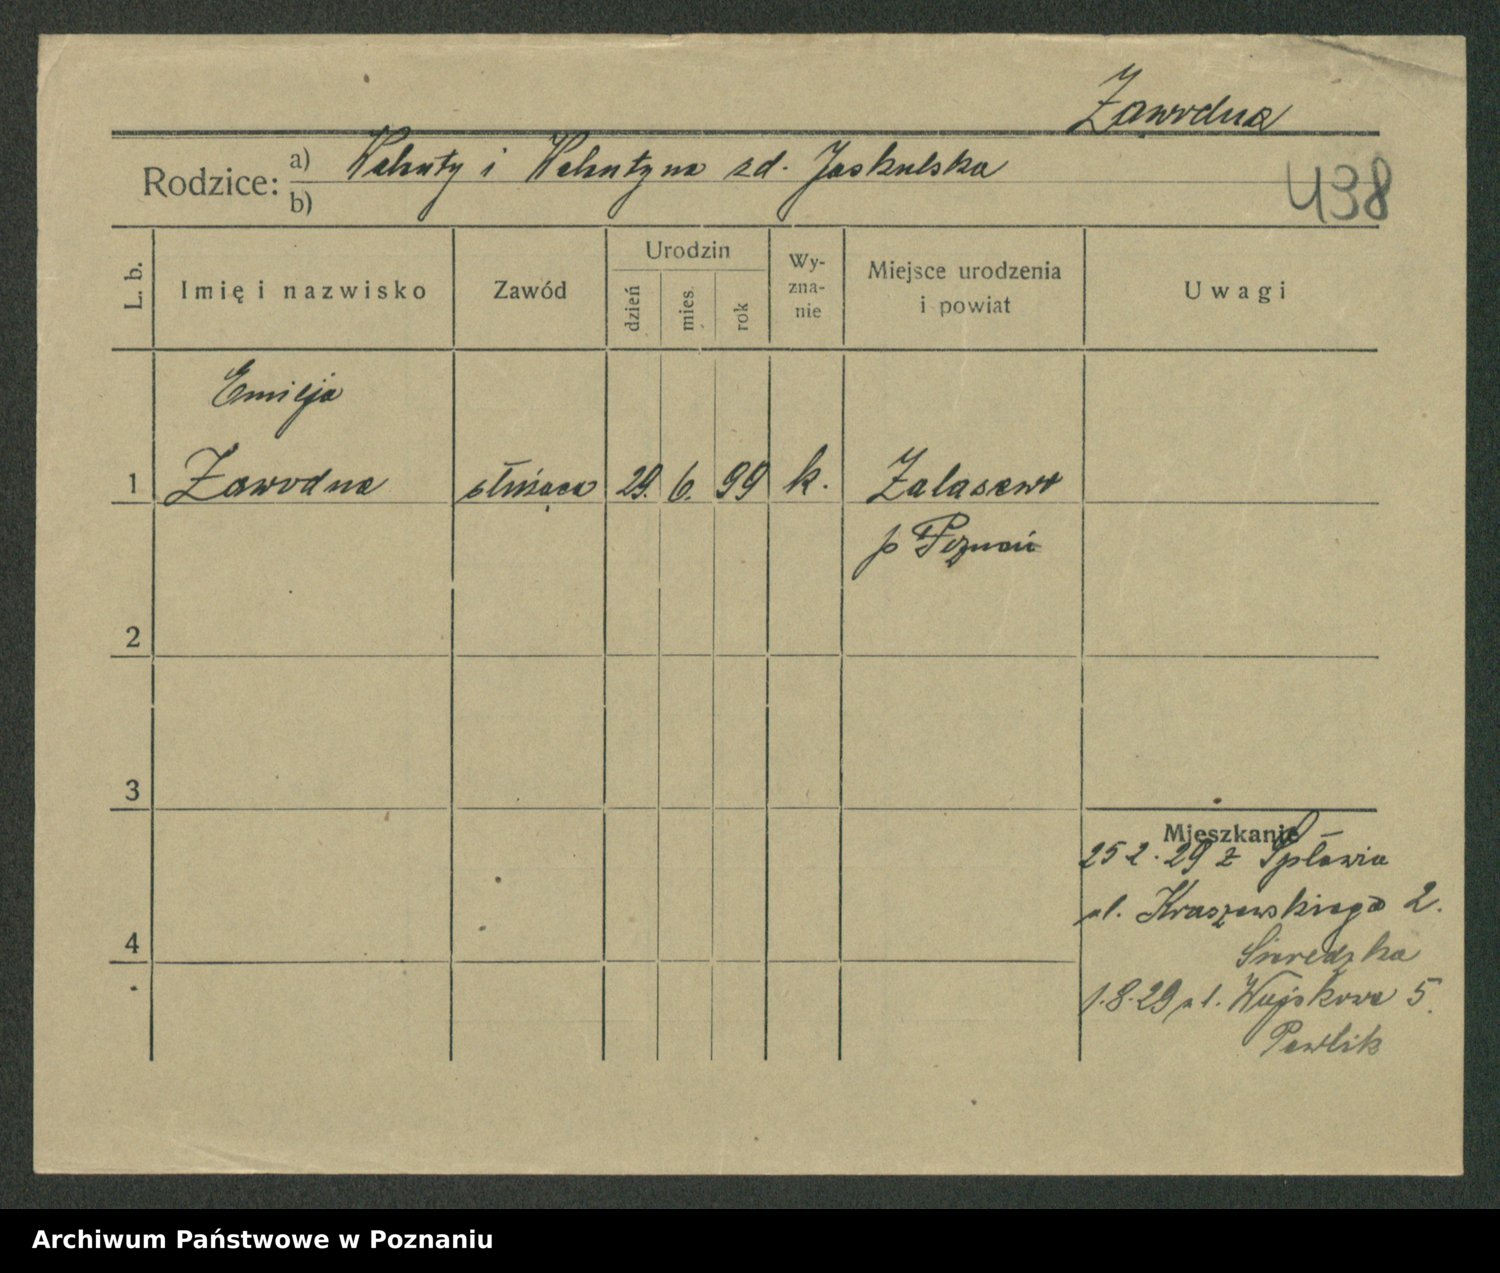 Zawodna
Rodzice: a) Walenty i Walentyna zd. Jaskulska
b)
438
L. b.
Imię i nazwisko
Zawód
Urodzin
dzień
mies.
rok
Wy-
zna-
nie
Miejsce urodzenia
i powiat
Uwagi
Emilja
1 Zawodna służąca 29. 6. 99 k. Zalasewo
p Poznań
2
3
Mieszkanie
25 2. 29 z Spławia
4
ul. Kraszewskiego 2.
1.8.29 ul. Wojskowa 5.
Pawlik
Archiwum Państwowe w Poznaniu